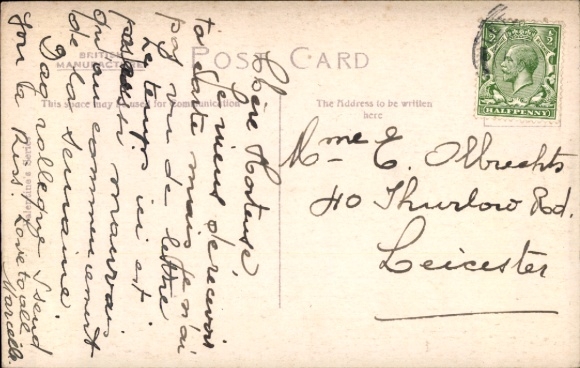 POST CARD
BRITISH
MANUFACTURE
This space may be used for Communication
The Address to be written
here
HALFPENNY
Chère Hortense,
Je viens de recevoir
ta carte mais je n'ai
pas vu de lettre
Le temps ici est
pas aussi mauvais
qu'au commencement
de la semaine.
Dag I send
you a kiss. Love to all
Marcelle.
Mme E. Olbrechts
40 Thurlow Rd.
Leicester